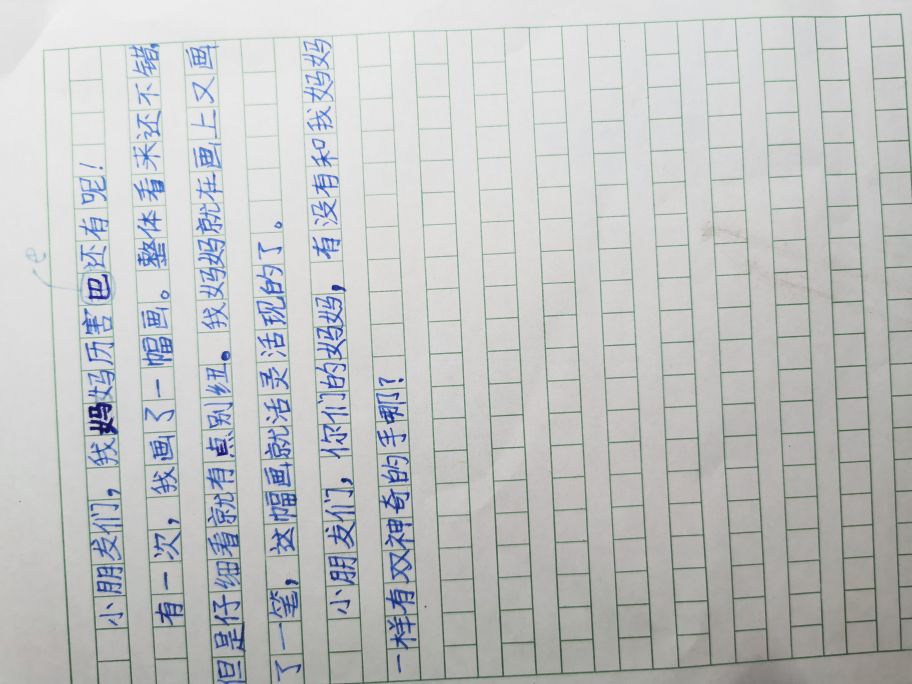 小朋友们，我妈妈历害巴还有呢！
有一次，我画了一幅画。整体看来还不错，
但是仔细看就有点别纽。我妈妈就在画上又画
了一笔，这幅画就活灵活现的了。
小朋友们，你们的妈妈，有没有和我妈妈
一样有双神奇的手哪？